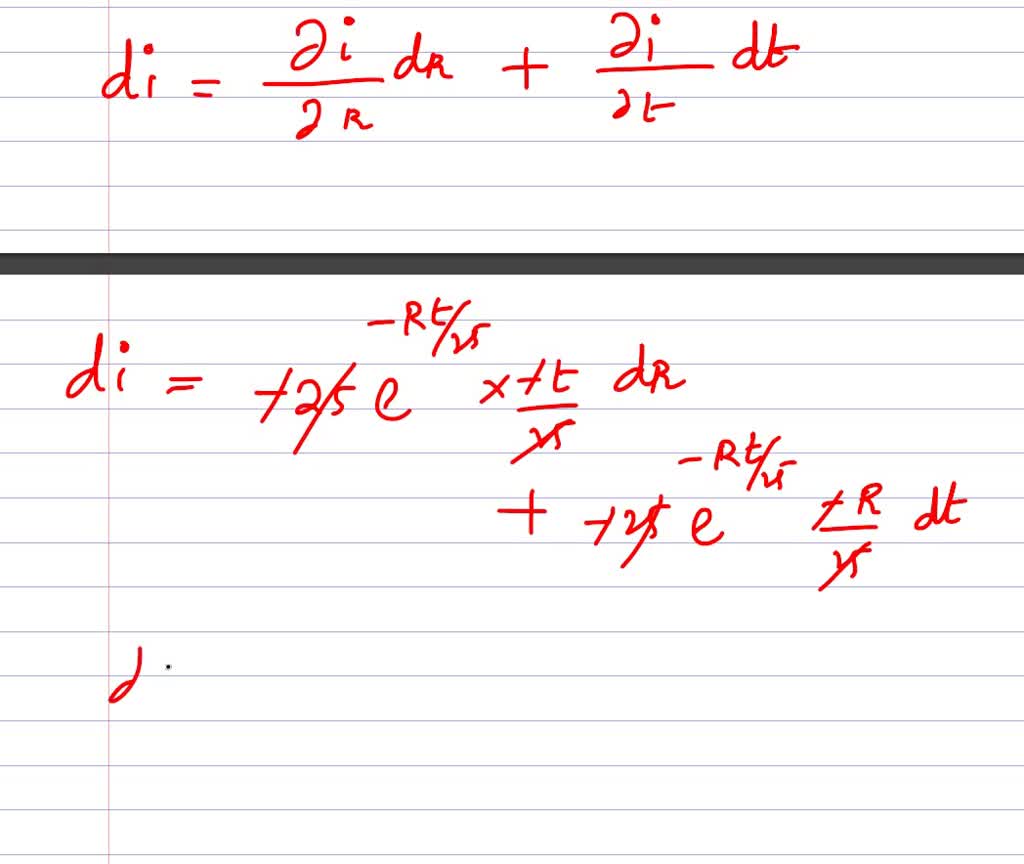 di = ∂i/∂R dR + ∂i/∂t dt
di = +25 e^(-Rt/25) × +t/25 dR
+ +25 e^(-Rt/25) +R/25 dt
d